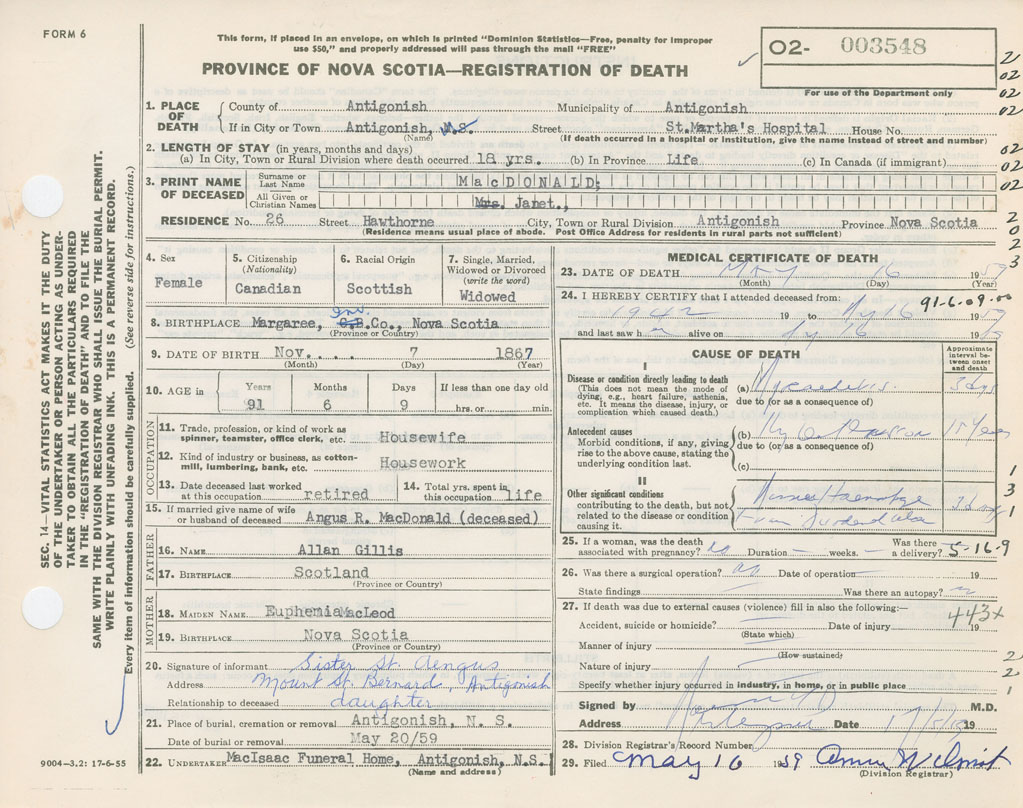 FORM 6
This form, if placed in an envelope, on which is printed "Dominion Statistics—Free, penalty for improper
use $50," and properly addressed will pass through the mail "FREE"
PROVINCE OF NOVA SCOTIA—REGISTRATION OF DEATH
O2- 003548
For use of the Department only
1. PLACE OF DEATH
County of Antigonish Municipality of Antigonish
If in City or Town Antigonish, N.S. Street St. Martha's Hospital House No.
(Name) (If death occurred in a hospital or institution, give the name instead of street and number)
2. LENGTH OF STAY (in years, months and days)
(a) In City, Town or Rural Division where death occurred 18 yrs. (b) In Province Life (c) In Canada (if immigrant)
3. PRINT NAME OF DECEASED
Surname or Last Name MacDONALD:
All Given or Christian Names Mrs. Janet.,
RESIDENCE No. 26 Street Hawthorne City, Town or Rural Division Antigonish Province Nova Scotia
(Residence means usual place of abode. Post Office Address for residents in rural parts not sufficient)
4. Sex
Female
5. Citizenship
(Nationality)
Canadian
6. Racial Origin
Scottish
7. Single, Married,
Widowed or Divorced
(write the word)
Widowed
8. BIRTHPLACE Margaree, Inv. C.B. Co., Nova Scotia
(Province or Country)
9. DATE OF BIRTH Nov. 7 1867
(Month) (Day) (Year)
10. AGE in
Years Months Days If less than one day old
91 6 9 hrs. or min.
OCCUPATION
11. Trade, profession, or kind of work as
spinner, teamster, office clerk, etc. Housewife
12. Kind of industry or business, as cotton-
mill, lumbering, bank, etc. Housework
13. Date deceased last worked
at this occupation retired
14. Total yrs. spent in
this occupation life
15. If married give name of wife
or husband of deceased Angus R. MacDonald (deceased)
FATHER
16. NAME Allan Gillis
17. BIRTHPLACE Scotland
(Province or Country)
MOTHER
18. MAIDEN NAME Euphemia MacLeod
19. BIRTHPLACE Nova Scotia
(Province or Country)
20. Signature of informant Sister St. Aengus
Address Mount St. Bernard, Antigonish
Relationship to deceased daughter
21. Place of burial, cremation or removal Antigonish, N. S.
Date of burial or removal May 20/59
22. UNDERTAKER MacIsaac Funeral Home, Antigonish, N.S.
(Name and address)
MEDICAL CERTIFICATE OF DEATH
23. DATE OF DEATH May 16 1959
(Month) (Day) (Year)
24. I HEREBY CERTIFY that I attended deceased from: 91-6-09-00
1942 19 to My 16 1959
and last saw h er alive on My 16 19
CAUSE OF DEATH
Approximate
interval be-
tween onset
and death
I
Disease or condition directly leading to death
(This does not mean the mode of
dying, e.g., heart failure, asthenia,
etc. It means the disease, injury, or
complication which caused death.)
(a) 3 dys
due to (or as a consequence of)
Antecedent causes
Morbid conditions, if any, giving
rise to the above cause, stating the
underlying condition last.
(b) 15 years
due to (or as a consequence of)
(c)
II
Other significant conditions
contributing to the death, but not
related to the disease or condition
causing it.
25. If a woman, was the death
associated with pregnancy? no Duration — weeks. — Was there
a delivery? 5-16-9
26. Was there a surgical operation? no Date of operation 19
State findings Was there an autopsy?
27. If death was due to external causes (violence) fill in also the following:—
443x
Accident, suicide or homicide? Date of injury 19
(State which)
Manner of injury
(How sustained)
Nature of injury
Specify whether injury occurred in industry, in home, or in public place
Signed by M.D.
Address Date 17/5/59 19
28. Division Registrar's Record Number
29. Filed May 16 1959
(Division Registrar)
2
02
02
02
02
02
02
2
0
2
3
1
3
1
2
2
1
SEC. 14—VITAL STATISTICS ACT MAKES IT THE DUTY
OF THE UNDERTAKER OR PERSON ACTING AS UNDER-
TAKER TO OBTAIN ALL THE PARTICULARS REQUIRED
IN THE "REGISTRATION OF DEATH" AND TO FILE THE
SAME WITH THE DIVISION REGISTRAR WHO SHALL ISSUE THE BURIAL PERMIT.
WRITE PLAINLY WITH UNFADING INK. THIS IS A PERMANENT RECORD.
Every item of information should be carefully supplied. (See reverse side for instructions.)
9004—3.2: 17-6-55